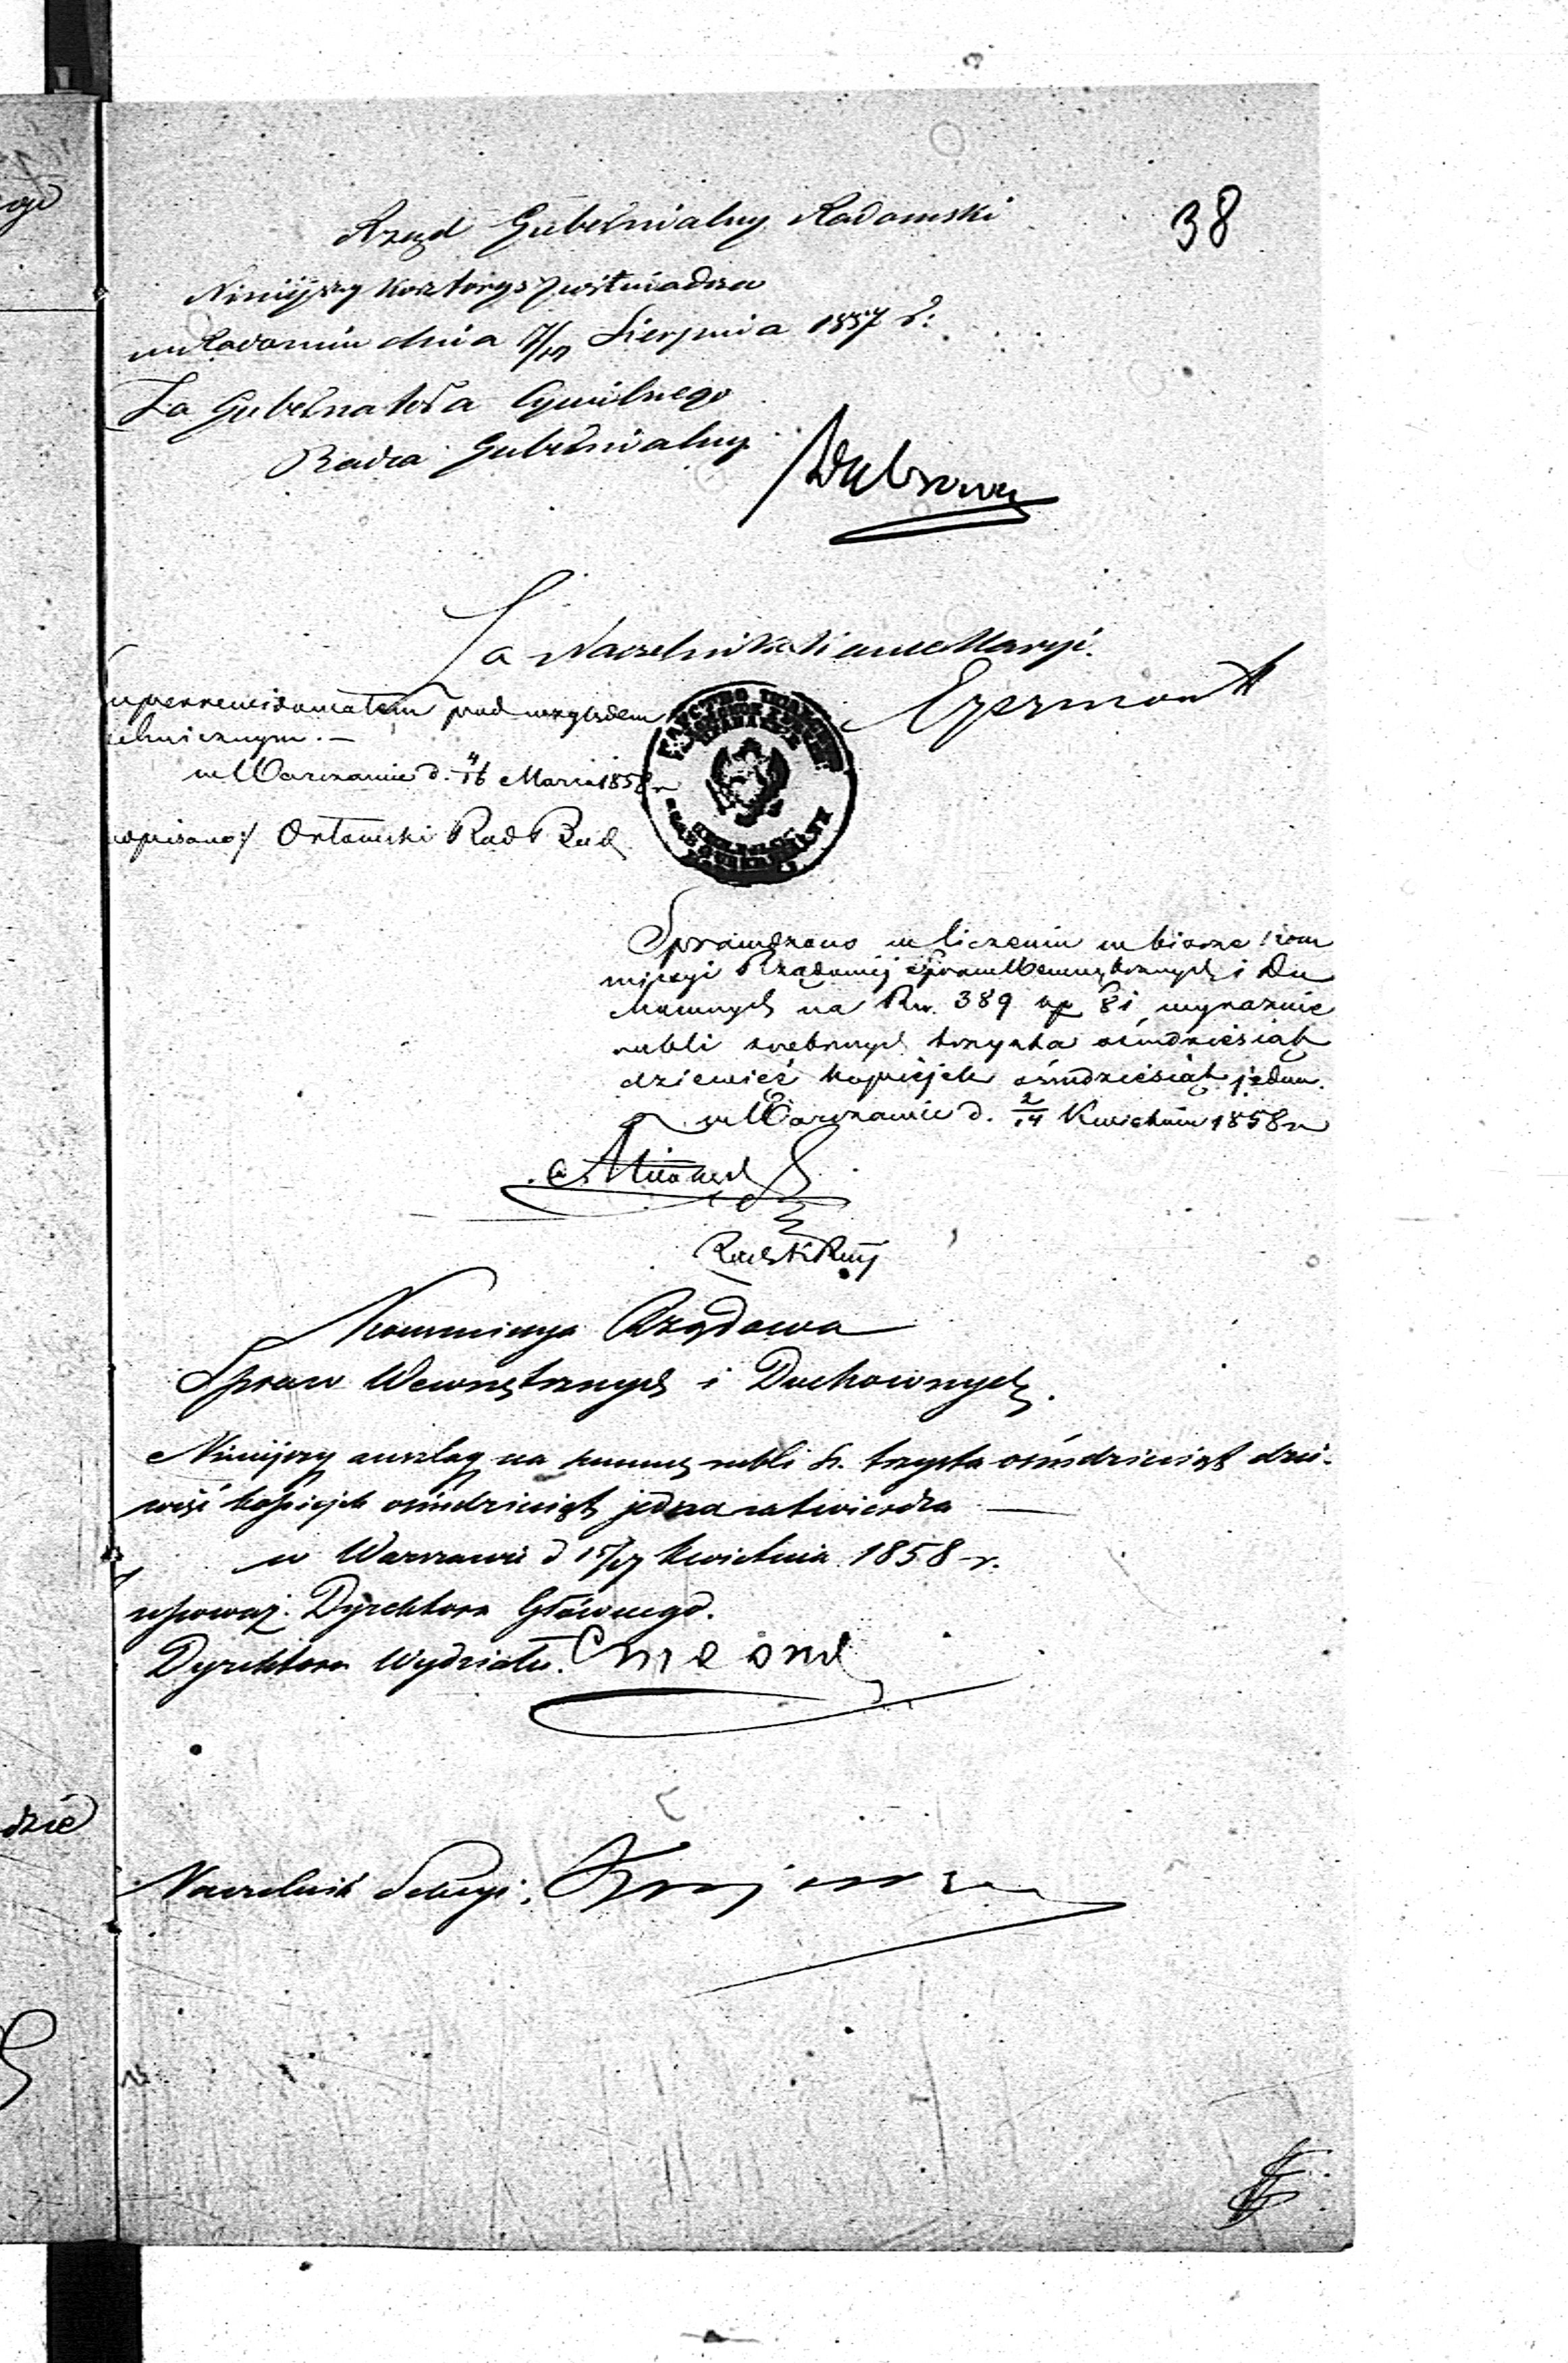 38
Rząd Gubernialny Radomski
Niniejszy kosztorys poświadcza
w Radomiu dnia Sierpnia 1857 r:
Za Gubernatora Cywilnego
Radca Gubernialny
Za Naczelnika Kancellaryi
Superrewidowałem pod względem
technicznym. —
w Warszawie d. 4/16 Marca 1858 r
podpisano:/ Orłowski Rad Bud
Sprawdzono w liczeniu w biórze Kom
missyi Rządowej Spraw Wewnętrznych i Du
chownych na Rsr. 389 kp 81 wyraznie
rubli srebrnych trzysta ośmdziesiąt
dziewięć kopiejek ośmdziesiąt jeden.
w Warszawie d. 2/14 Kwietnia 1858 r
Kommissya Rządowa
Spraw Wewnętrznych i Duchownych.
Niniejszy anszlag na summę rubli sr. trzysta ośmdziesiąt dzie-
więć kopiejek ośmdziesiąt jedna zatwierdza —
w Warszawie d 5/17 Kwietnia 1858 r.
upoważ. Dyrektora Głównego.
Dyrektora Wydziału.
Naczelnik Sekcyi.
dzie